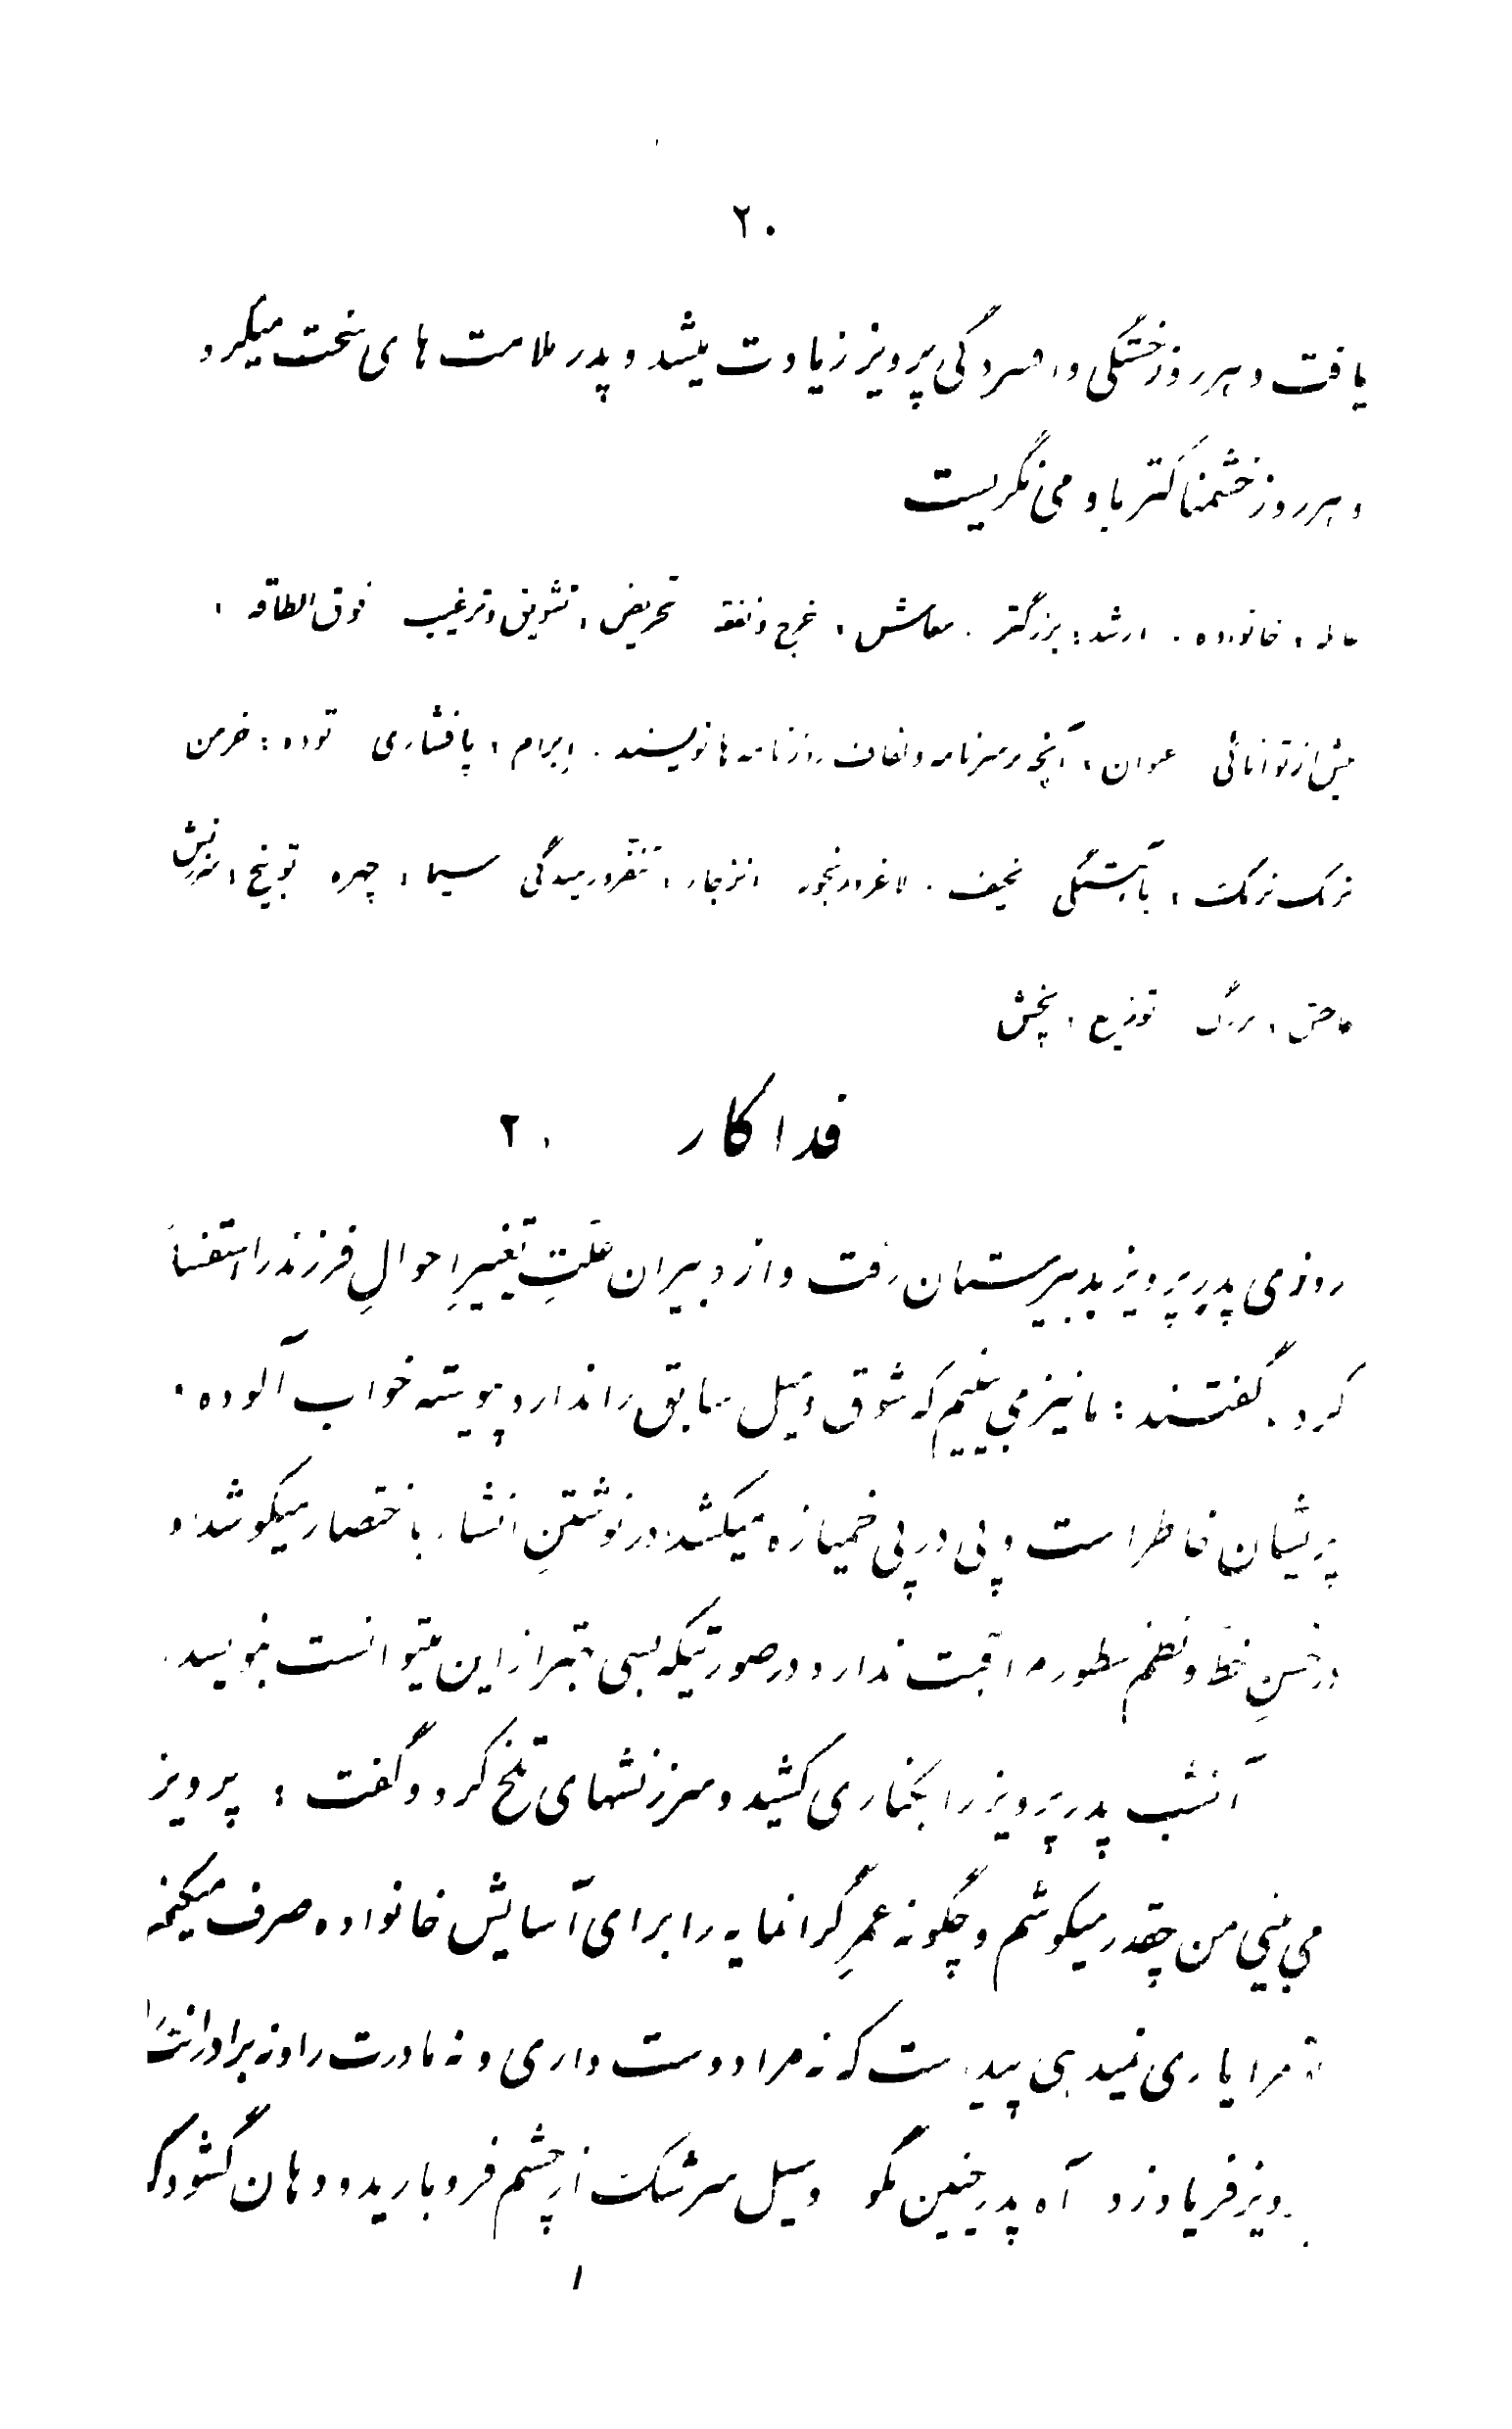 ۲۰
یافت و هر روز خستگی و افسردگی پرویز زیادت میشد و پدر ملامت های سخت میکرد
و هر روز خشمناکتر باو می نگریست
عائله : خانواده . ارشد : بزرگتر . معاش : خرج و نفقه تحریض : تشویق و ترغیب فوق الطاقه :
بیش از توانائی عنوان : آنچه در سرنامه و لفاف روزنامه ها نویسند . ابرام : پافشاری توده : خرمن
نرمک نرمک : بآهستگی نحیف . لاغر و رنجور انزجار : تنفر و رمیدگی سیما : چهره توبیخ : سرزنش
فاحش : بزرگ توزیع : پخش
فداکار ۲۰
روزی پدرِ پرویز بدبیرستان رفت و از دبیران علّتِ تغییرِ احوالِ فرزند را استقصا
کرد . گفتند : ما نیز می بینیم که شوق و میل سابق را ندارد پیوسته خواب آلوده .
پریشان خاطر است و پی در پی خمیازه میکشد در نوشتنِ انشاء باختصار میکوشد و
در حُسنِ خطّ و نظم سطور مراقبت ندارد در صورتیکه بسی بهتر از این میتوانست بنویسد .
آنشب پدر پرویز را بکناری کشید و سرزنشهای تلخ کرد و گفت : پرویز
می بینی من چقدر میکوشم و چگونه عمرِ گرانمایه را برای آسایش خانواده صرف میکنم
تو مرا یاری نمیدهی پیداست که نه مرا دوست داری و نه مادرت را و نه برادرانت را
پرویز فریاد زد آه پدر چنین مگو و سیل سرشک از چشم فرو بارید و دهان گشود که